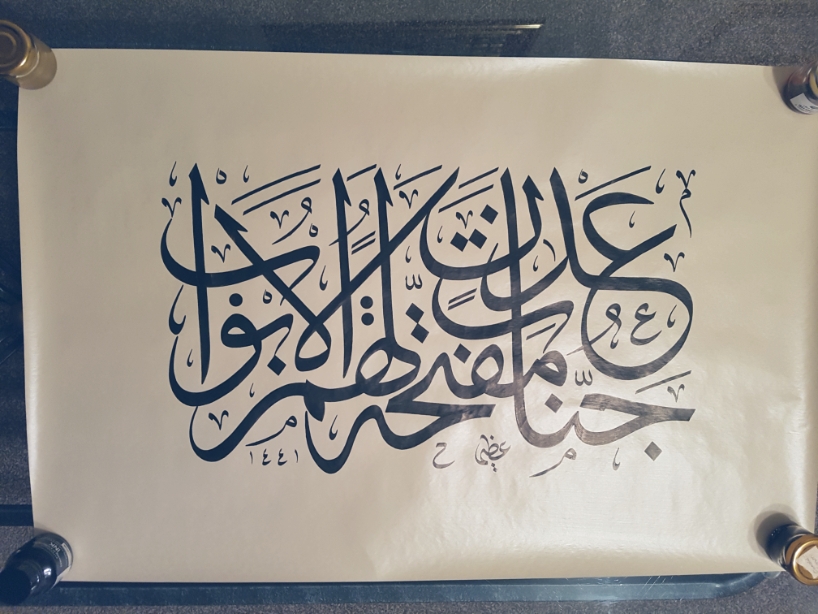 جنّات عدن مفتحة لهم الأبواب
عظيم
١٤٤١